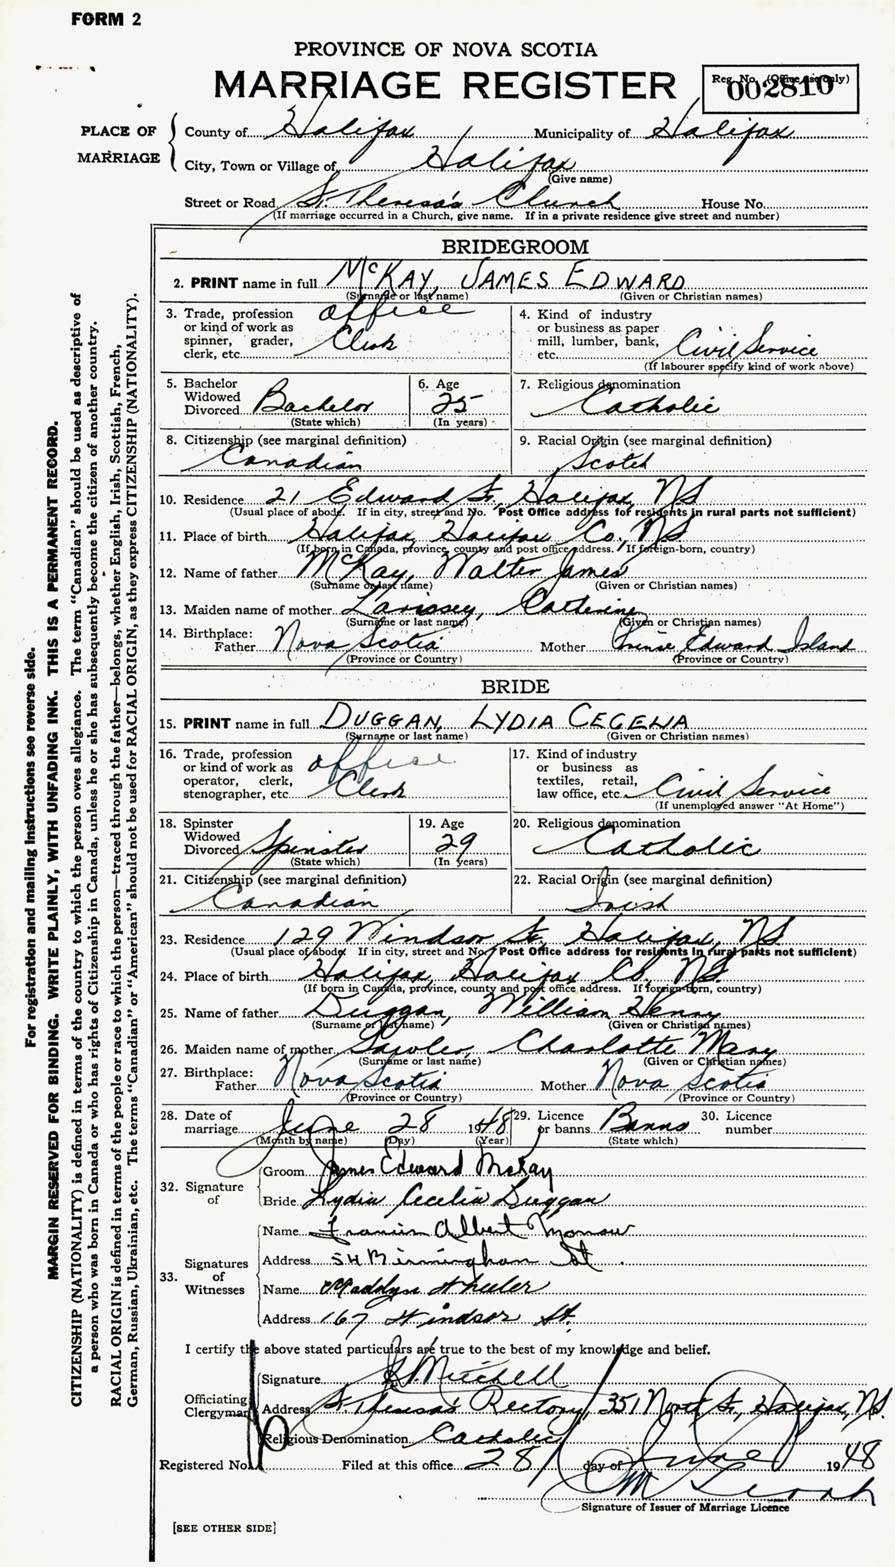 FORM 2
PROVINCE OF NOVA SCOTIA
MARRIAGE REGISTER
Reg. No. (Office use only)
002810
PLACE OF MARRIAGE
County of Halifax Municipality of Halifax
City, Town or Village of Halifax
(Give name)
Street or Road St. Theresa's Church House No.
(If marriage occurred in a Church, give name. If in a private residence give street and number)
BRIDEGROOM
2. PRINT name in full McKAY, JAMES EDWARD
(Surname or last name) (Given or Christian names)
3. Trade, profession or kind of work as spinner, grader, clerk, etc. office Clerk
4. Kind of industry or business as paper mill, lumber, bank, etc. Civil Service
(If labourer specify kind of work above)
5. Bachelor Widowed Divorced Bachelor
(State which)
6. Age 25
(In years)
7. Religious denomination
Catholic
8. Citizenship (see marginal definition)
Canadian
9. Racial Origin (see marginal definition)
Scotch
10. Residence 21 Edward St., Halifax, NS
(Usual place of abode. If in city, street and No. Post Office address for residents in rural parts not sufficient)
11. Place of birth Halifax, Halifax Co., NS
(If born in Canada, province, county and post office address. If foreign-born, country)
12. Name of father McKay, Walter James
(Surname or last name) (Given or Christian names)
13. Maiden name of mother Larissey, Catherine
(Surname or last name) (Given or Christian names)
14. Birthplace: Father Nova Scotia Mother Prince Edward Island
(Province or Country) (Province or Country)
BRIDE
15. PRINT name in full DUGGAN, LYDIA CECELIA
(Surname or last name) (Given or Christian names)
16. Trade, profession or kind of work as operator, clerk, stenographer, etc. office Clerk
17. Kind of industry or business as textiles, retail, law office, etc. Civil Service
(If unemployed answer "At Home")
18. Spinster Widowed Divorced Spinster
(State which)
19. Age 29
(In years)
20. Religious denomination
Catholic
21. Citizenship (see marginal definition)
Canadian
22. Racial Origin (see marginal definition)
Irish
23. Residence 129 Windsor St., Halifax, NS
(Usual place of abode If in city, street and No. Post Office address for residents in rural parts not sufficient)
24. Place of birth Halifax, Halifax Co., NS.
(If born in Canada, province, county and post office address. If foreign-born, country)
25. Name of father Duggan, William Henry
(Surname or last name) (Given or Christian names)
26. Maiden name of mother Lawlor, Charlotte Mary
(Surname or last name) (Given or Christian names)
27. Birthplace: Father Nova Scotia Mother Nova Scotia
(Province or Country) (Province or Country)
28. Date of marriage June 28 1948
(Month by name) (Day) (Year)
29. Licence or banns Banns
(State which)
30. Licence number
32. Signature of
Groom James Edward McKay
Bride Lydia Cecelia Duggan
33. Signatures of Witnesses
Name Francis Albert
Address 54 Birmingham St.
Name Madelyn Wheeler
Address 167 Windsor St.
I certify the above stated particulars are true to the best of my knowledge and belief.
Officiating Clergyman
Signature Mitchell
Address St. Theresa's Rectory, 351 North St., Halifax, NS.
Religious Denomination Catholic
Registered No. 16 Filed at this office 28 day of June 1948
Signature of Issuer of Marriage Licence
[SEE OTHER SIDE]
For registration and mailing instructions see reverse side.
MARGIN RESERVED FOR BINDING. WRITE PLAINLY, WITH UNFADING INK. THIS IS A PERMANENT RECORD.
CITIZENSHIP (NATIONALITY) is defined in terms of the country to which the person owes allegiance. The term "Canadian" should be used as descriptive of
a person who was born in Canada or who has rights of Citizenship in Canada, unless he or she has subsequently become the citizen of another country.
RACIAL ORIGIN is defined in terms of the people or race to which the person—traced through the father—belongs, whether English, Irish, Scottish, French,
German, Russian, Ukrainian, etc. The terms "Canadian" or "American" should not be used for RACIAL ORIGIN, as they express CITIZENSHIP (NATIONALITY).